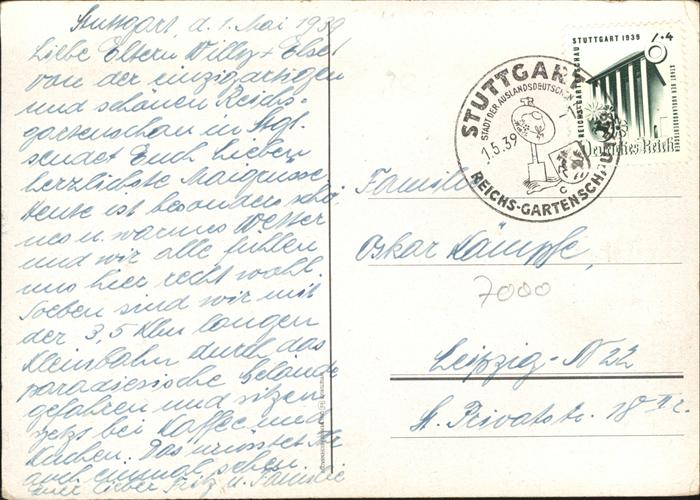 Stuttgart, d. 1. Mai 1939
Liebe Eltern Willy + Else!
Von der einzigartigen
und schönen Reichs-
gartenschau in Stgt.
sendet Euch Lieben
herzlichste Maigrüsse.
Heute ist besonders schö-
nes u. warmes Wetter
und wir alle fühlen
uns hier recht wohl.
Soeben sind wir mit
der 3,5 Klm langen
Kleinbahn durch das
paradiesische Gelände
gefahren und sitzen
jetzt bei Kaffee und
Kuchen. Das müsstet Ihr
auch einmal sehen.
Euer lieber Fritz u. Familie
STUTTGART 1939
6+4
REICHS-GARTENSCHAU
STADT DER AUSLANDSDEUTSCHEN
Deutsches Reich
STUTTGART
STADT DER AUSLANDSDEUTSCHEN
1.5.39
c
REICHS-GARTENSCHAU
Familie
Oskar Kämpfe,
7000
Leipzig-N 22
St. Privatstr. 18 II r.